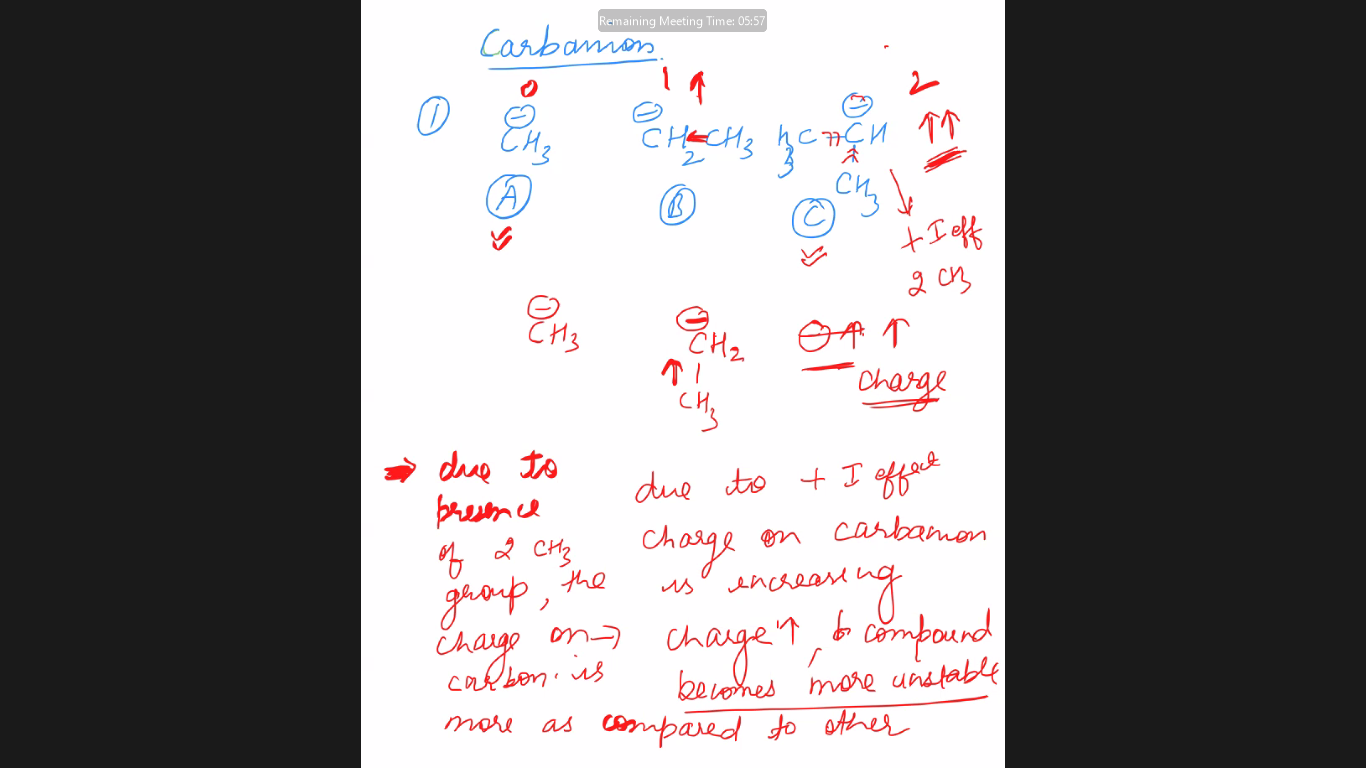 Remaining Meeting Time: 05:57
Carbanion
0 1 ↑ 2
① ⊖ ⊖ ⊖ ↑↑
CH3 CH2←CH3 h3C CH
CH3
A B C
+ I eff
2 CH3
⊖ ⊖ ⊖↑ ↑
CH3 CH2
↑ | charge
CH3
→ due to
presence
of 2 CH3
group, the
charge on →
carbon is
more as compared to other
due to + I effect
charge on carbanion
is increasing
charge ↑, compound
becomes more unstable